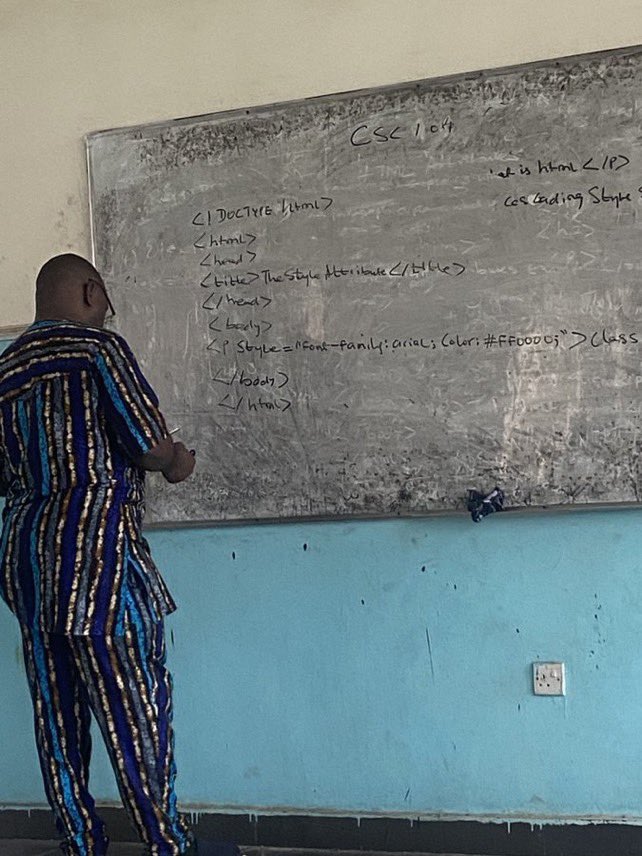 CSC 104
is html </P>
Cascading Style
<! DOCTYPE html>
<html>
<head>
<title> The Style Attribute </title>
</head>
<body>
<P Style="font-family: arial; Color: #FF0000;"> Class
</body>
</html>